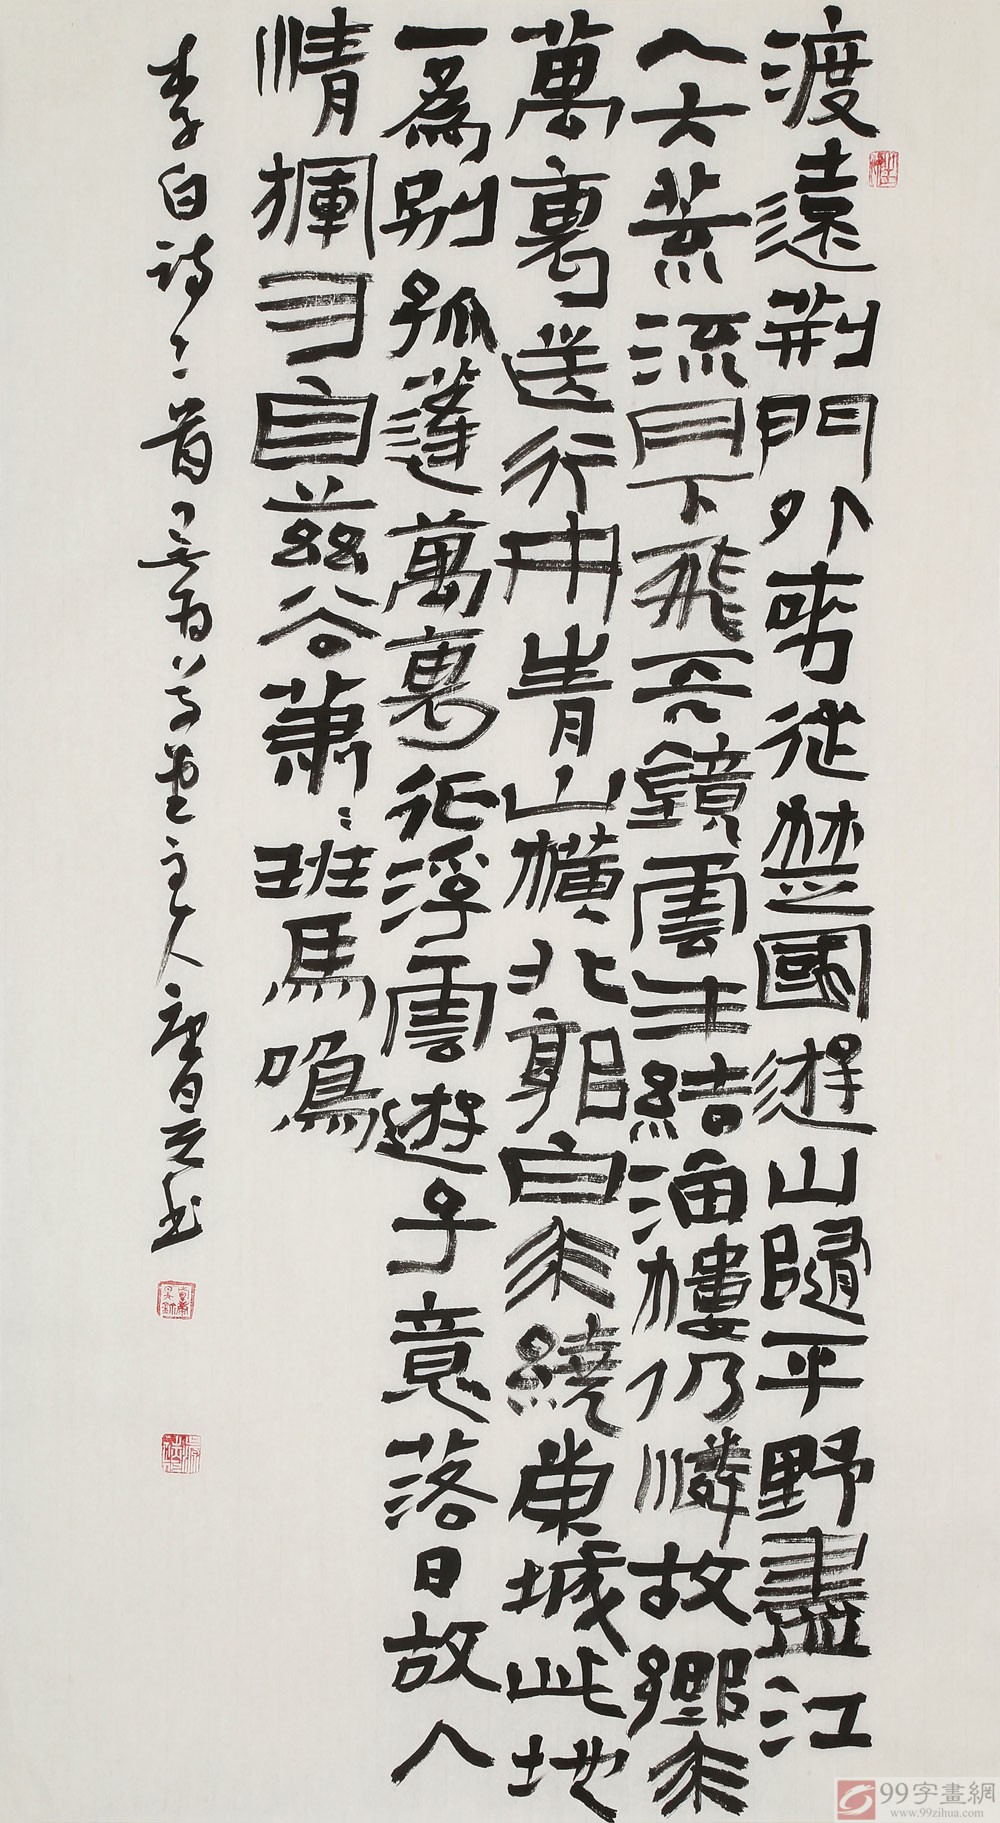 渡遠荊門外來從楚國遊山隨平野盡江
入大荒流月下飛天鏡雲生結海樓仍憐故鄉水
萬裏送行舟青山橫北郭白水繞東城此地
一爲別孤蓬萬裏征浮雲遊子意落日故人
情揮手自茲去蕭〻班馬鳴
李白詩二首 堂主人 书
99字畫網
www.99zihua.com